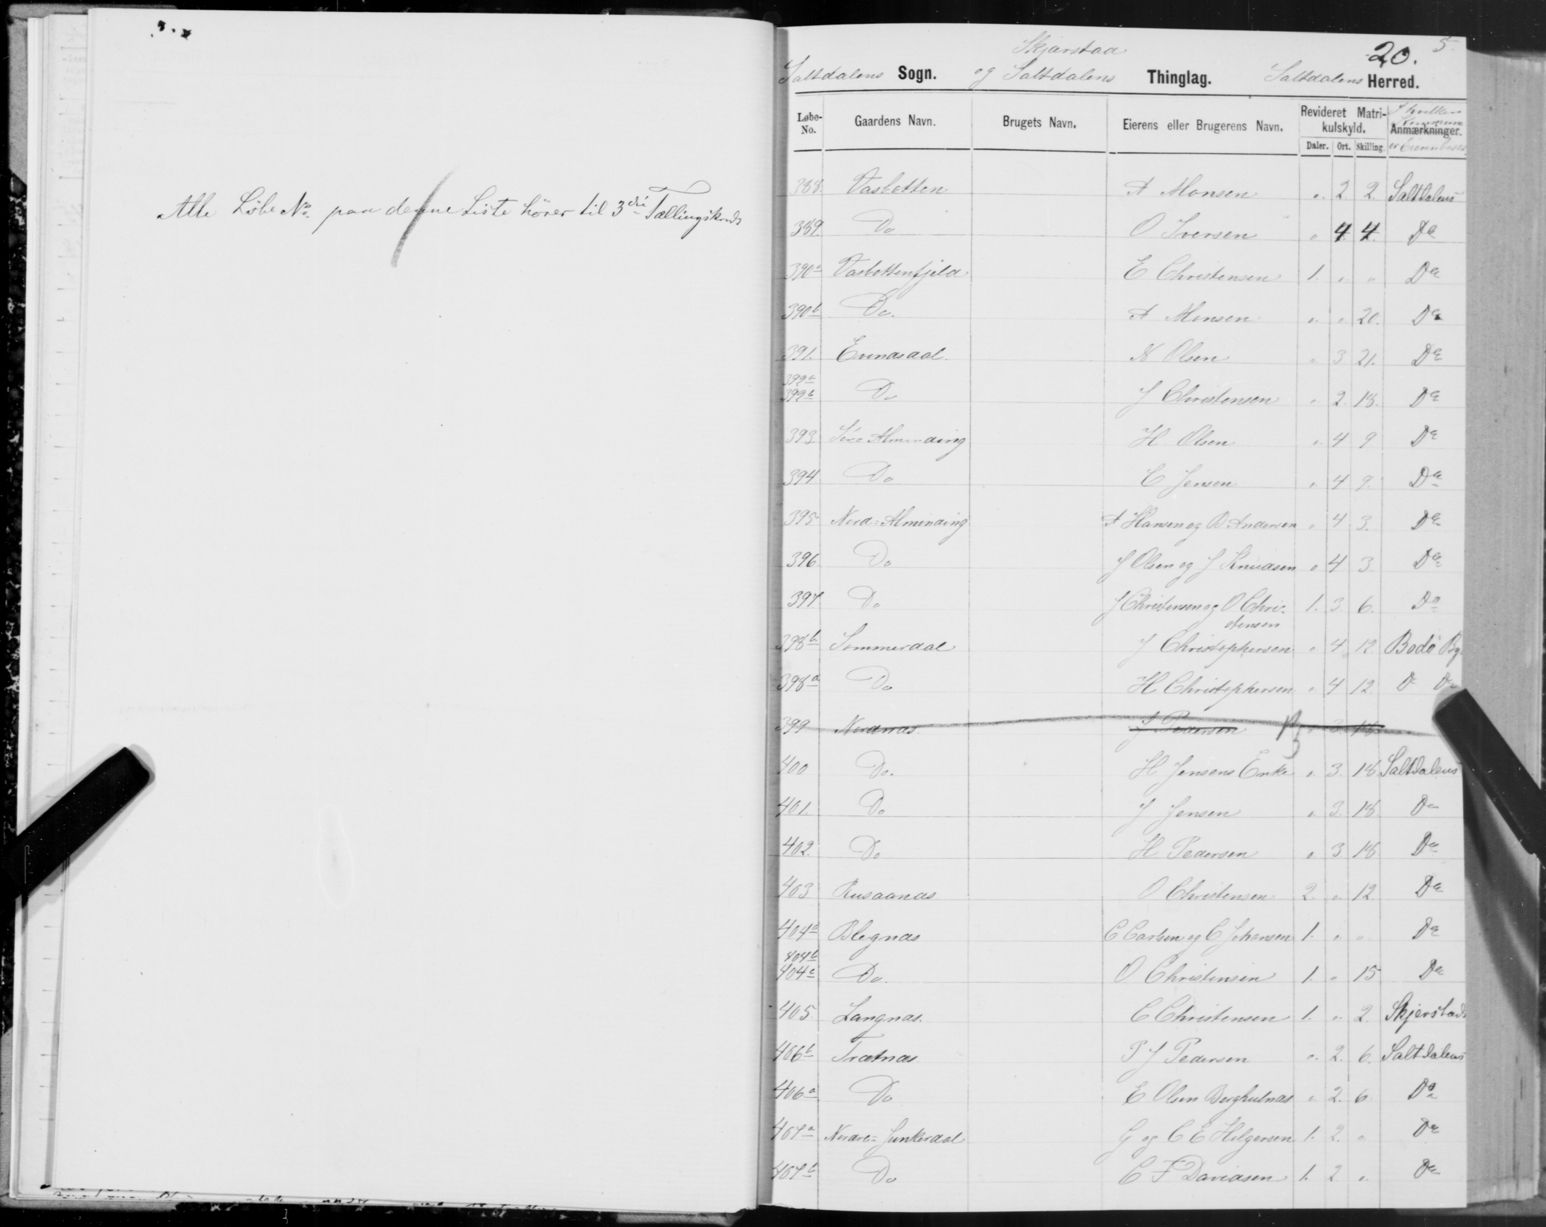 Alle Løbe No. paa denne Liste hører til 3die Tællingskreds
20. 5
Skjerstad
Saltdalens Sogn. og Saltdalens Thinglag. Saltdalens Herred.
Løbe-No. Gaardens Navn. Brugets Navn. Eierens eller Brugerens Navn. Revideret Matrikulskyld. Anmærkninger.
Daler. Ort. Skilling.
388 Vasbotten A Monsen " 2 2 Saltdalens
389 Do O Iversen " 4 4 Do
390a Vasbottenfjeld E Christensen 1 " " Do
390b Do. A Monsen " " 20 Do
391. Evensdal N Olsen " 3 21. Do
392a
392b Do J Christensen " 2 18. Do
393 Sør Alminding H Olsen " 4 9 Do
394 Do C Jensen " 4 9. Do
395 Nord-Alminding A Hansen og B Andersen " 4 3. Do
396 Do J Olsen og J Knudsen " 4 3 Do
397 Do J Christensen og O Christensen 1. 3 6. Do
398b Sommerdal J Christophersen " 4 12 Bodø By
398a Do H Christophersen " 4 12 Do Do
399 Nordnas J Pedersen " 3 18
400 Do. H Jensens Enke " 3. 18 Saltdalens
401. Do J Jensen " 3. 18. Do
402. Do H Pedersen " 3 18 Do
403 Rusaanas O Christensen 2 " 12. Do
404a Blegnas C Carlsen og C Johansen 1. " " Do
404b
404c Do. O Christensen 1. " 15 Do
405 Langnas. C Christensen 1. " 2 Skjerstads
406b Trætnas P J Pedersen " 2. 6. Saltdalens
406a Do E Olsen Berghulnas " 2. 6 Do
407a Nordre-Junkerdal G og C E Helgesen 1. 2. " Do
407b Do C F Davidsen 1. 2 " Do